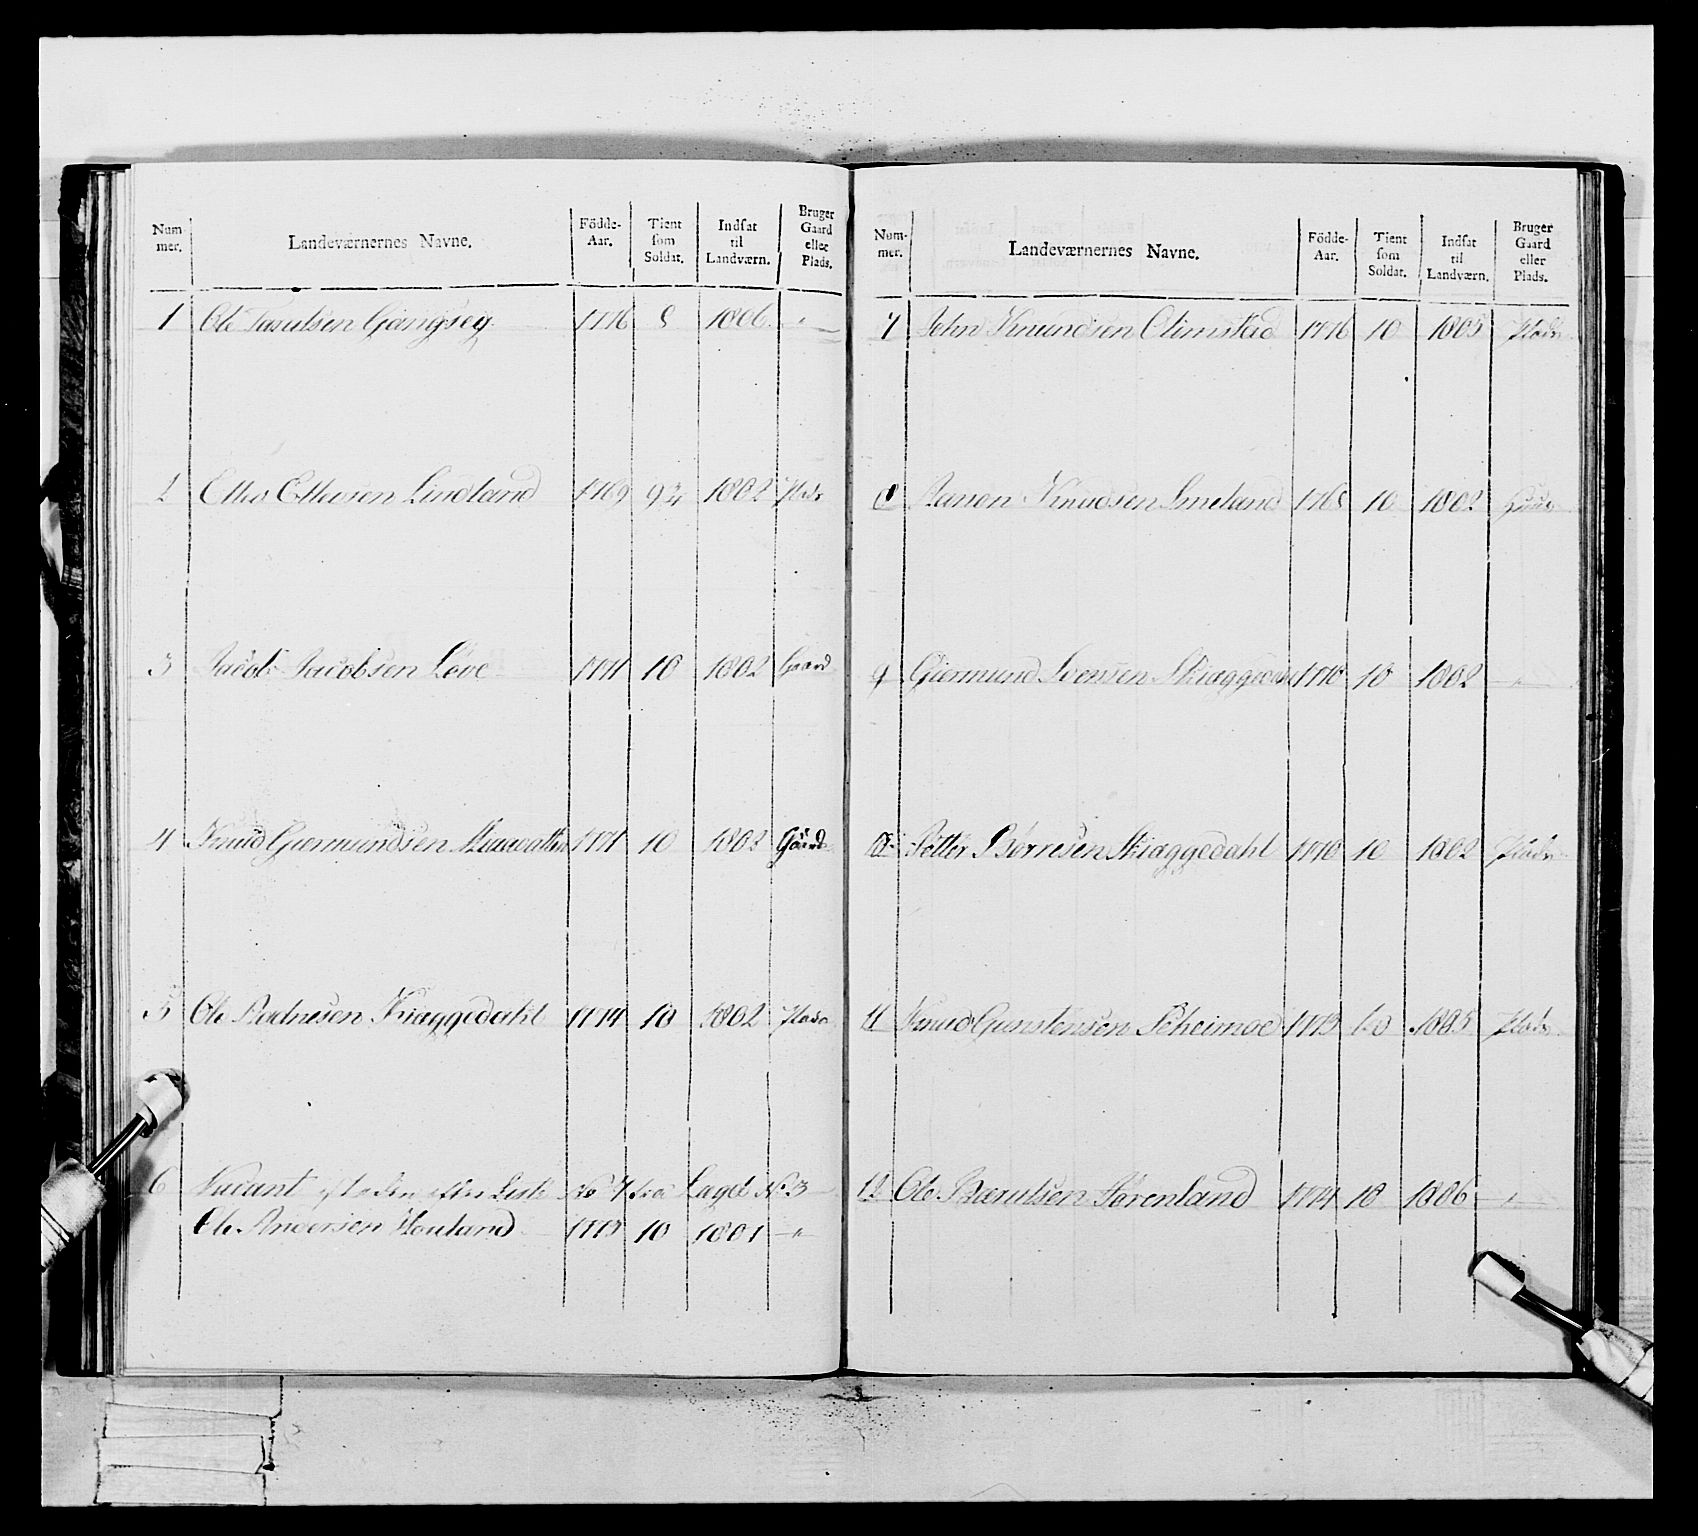 Num mer. Landeværnernes Navne. Födde-Aar. Tient som Soldat. Indsat til Landværn. Bruger Gaard eller Plads.
1 Ole Taraldsen Gangseg 1776 8 1806 "
2 Otto Ottersen Lindland 1769 9¾ 1802 Plads
3 Jacob Jacobsen Løve 1771 10 1802 Gaard
4 Knud Giermundsen 1771 10 1802 Gaard
5 Ole Kiæggedahl 1774 10 1802 Plads
6 Vacant No 7 fra Laget No 3
Ole Andersen Houland 1773 10 1801 "
Num-mer. Landeværnernes Navne. Födde-Aar. Tient som Soldat. Indsat til Landværn. Bruger Gaard eller Plads.
7 John Knundsen Olimstad 1776 10 1805 Plads
8 Aanon Knudsen Smeland 1768 10 1802 Gaard
9 Giermund Svensen 1770 10 1802 "
10 Petter Børresen Skiæggedahl 1770 10 1802 Plads
11 Knud Gunstensen 1773 10 1805 Plads
12 Ole 1774 10 1806 "